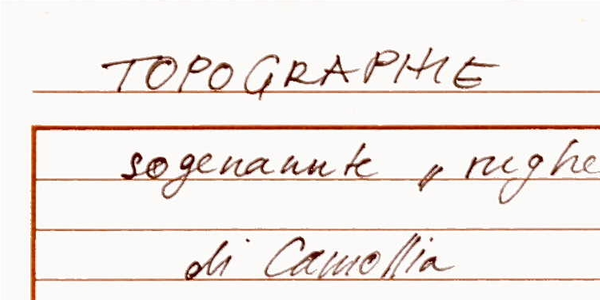 TOPOGRAPHIE
sogenannte „rughe
di Camollia